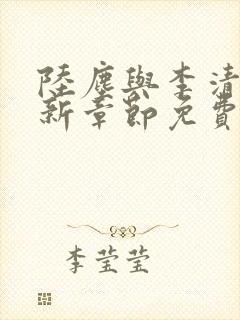 陸塵與李清
新章節免費
李莹莹